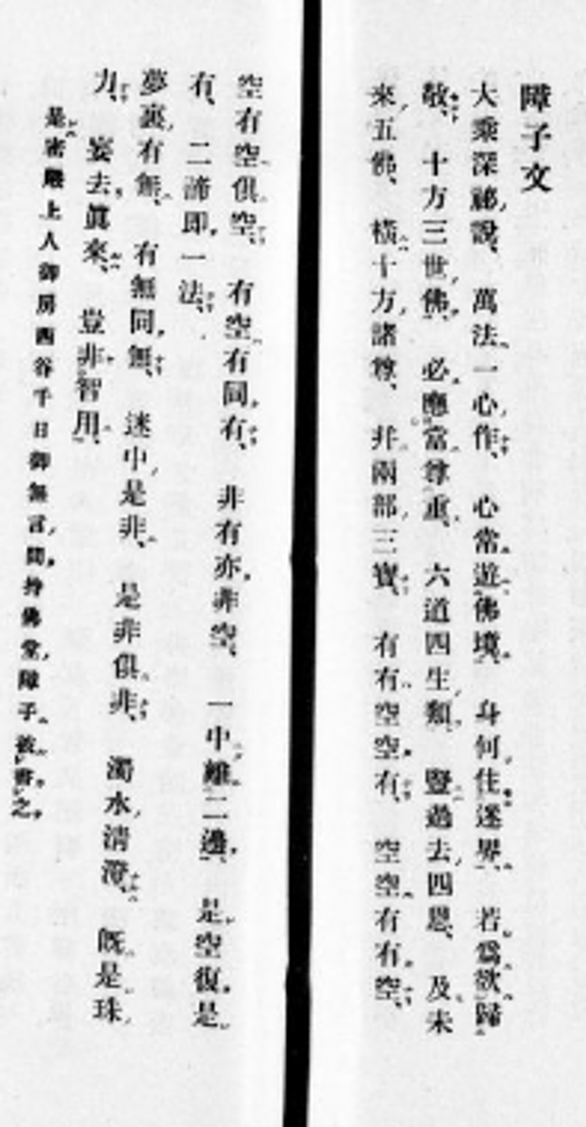 障子文
大乘深祕說、萬法一心作、心常遊佛境、身何住迷界、若爲欲歸
敬、十方三世佛、必應當尊重、六道四生類、豎過去四恩、及未
來五佛、橫十方諸尊、幷兩部三寶、有有空空有、空空有有空、
空有空俱空、有空有同有、非有亦非空、一中離二邊、是空復是
有、二諦卽一法、
夢裏有無、有無同無、迷中是非、是非俱非、濁水淸澄、旣是珠
力、妄去眞來、豈非智用、
是密嚴上人御房西谷千日御無言間、持佛堂障子被書之、